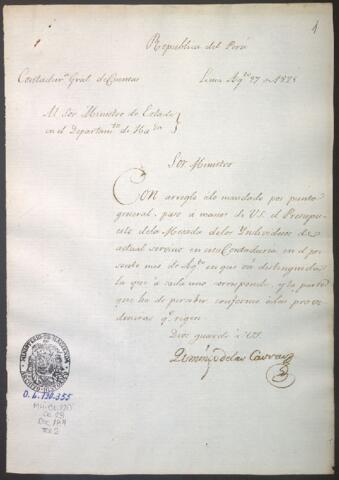 1
Republica del Perú
Contadurª. Gral de Cuentas
Lima Agto. 27 de 182
Al Sor. Ministro de Estado
en el Departamto. de Hada.
Sor. Ministro
Con arreglo á lo mandado por punto
general, paso a manos de V.S. el Presupu-
esto de la Mesada de los Yndividuos de
actual servicio en esta Contaduria en el pre-
sente mes de Agto. en que vá distinguida
la que á cada uno corresponde, y la parte
que ha de percibir conforme á las provi-
dencias qe. rigen.
Dios guarde á V.S.
de las Carreras
O.L. 130-355